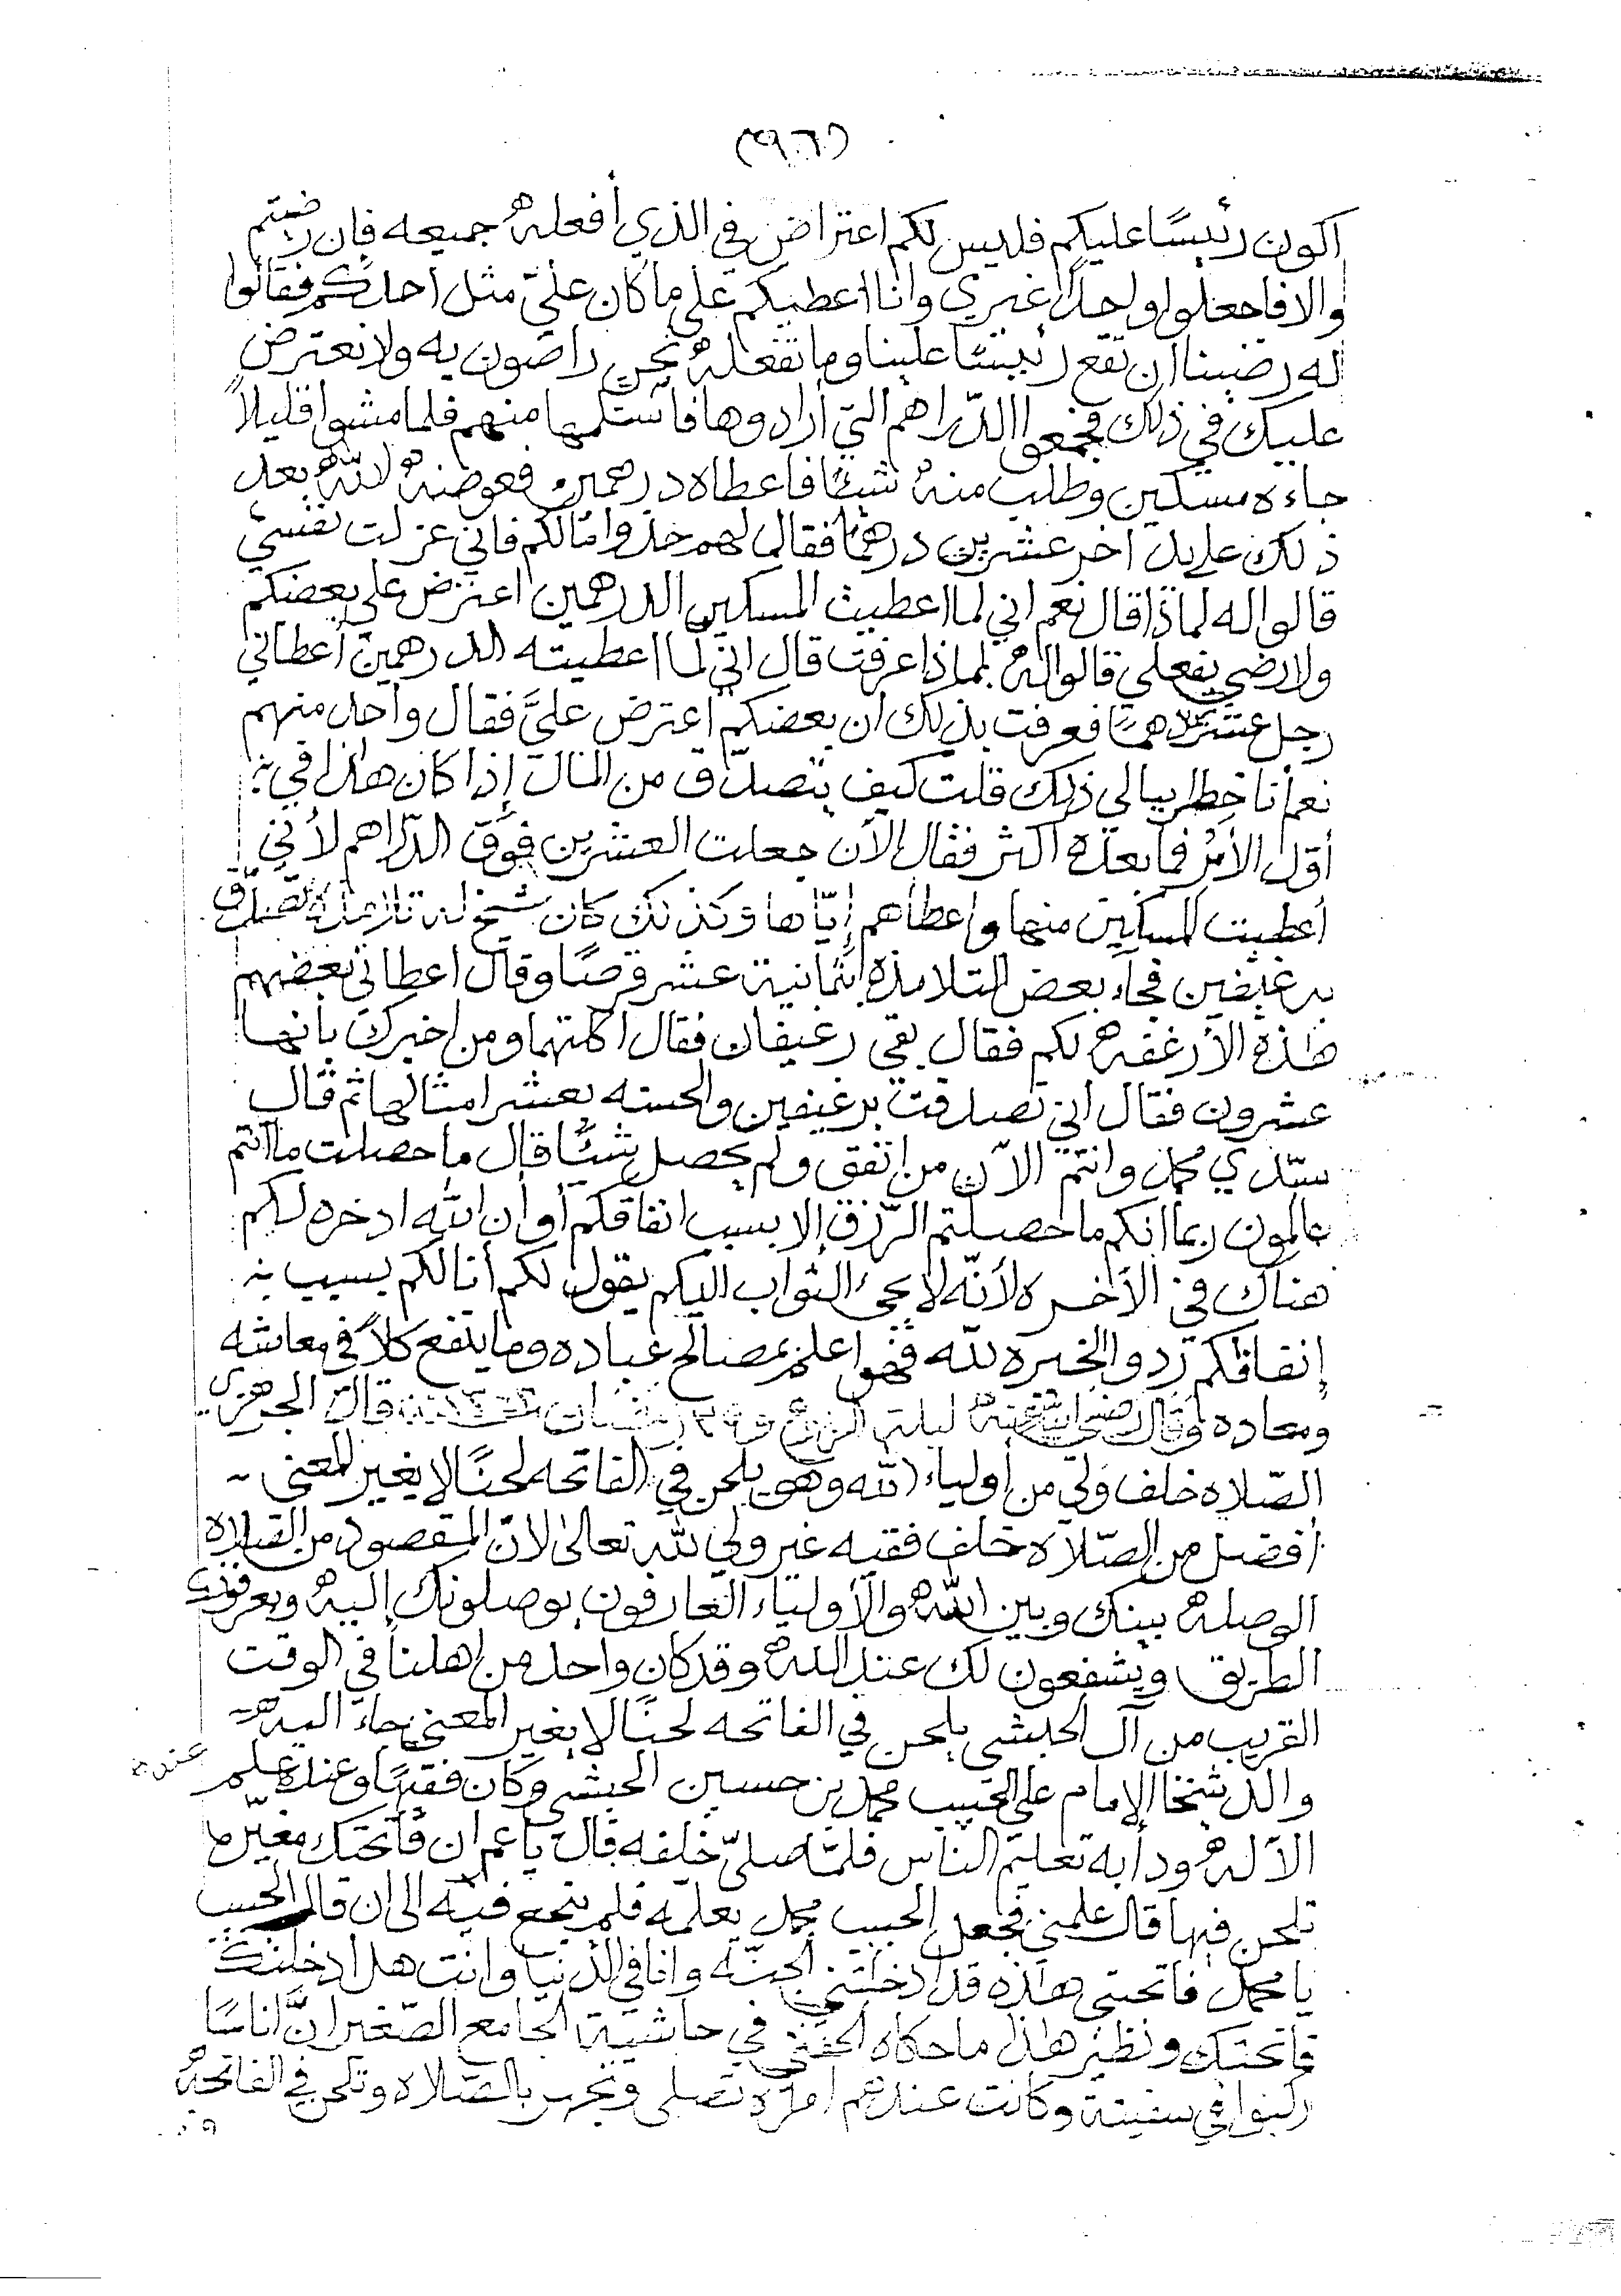 (٣٩٠٦)
اكون رئيسًا عليكم فليس لكم اعتراض في الذي أفعله جميعه فإن رضيتم
والا فاجعلوا واحدًا غيري وانا اعطيكم على ما كان عليّ مثل احدكم فقالوا
له رضينا ان تقع رئيسًا علينا وما تفعله نحن راضون به ولا نعترض
عليك في ذلك فجمعوا الدّراهم التي أرادوها فاستلمها منهم فلما مشوا قليلاً
جاءه مسكين وطلب منه شيئًا فاعطاه درهمين فعوضه الله بعد
ذلك على يد آخر عشرين درهمًا فقال لهم خذوا مالكم فاني عزلت نفسي
قالوا له لماذا قال نعم اني لما اعطيت المسكين الدرهمين اعترض علي بعضكم
ولا رضي بفعلي قالوا له بماذا عرفت قال اني لما اعطيته الدرهمين أعطاني
رجل عشرين درهمًا فعرفت بذلك ان بعضكم اعترض عليّ فقال واحد منهم
نعم أنا خطر ببالي ذلك قلت كيف يتصدق من المال إذا كان هاذا في
أوّل الأمر فما بعده اكثر فقال الآن جعلت العشرين فوق الدّراهم لأني
أعطيت المسكين منها واعطاهم إيّاها وكذلك كان شيخ له تلامذة تصدّق
برغيفين فجاء بعض التلامذه بثمانية عشر قرصًا وقال اعطاني بعضهم
هذه الأرغفه لكم فقال بقي رغيفان فقال اكلتهما ومن اخبرك بانها
عشرون فقال اني تصدقت برغيفين والحسنه بعشر امثالها ثم قال
سيّدي محمد وانتم الآن من اتفق ولم يحصل شيئًا قال ما حصلت ما انتم
عالمون ربما انكم ما حصلتم الرّزق إلا بسبب انفاقكم أو أن الله ادخره لكم
هناك في الآخره لأنّه لا يجيء الثواب اليكم يقول لكم أنا لكم بسبب
إنفاقكم ردوا الخيره لله فهو اعلم بمصالح عباده وما ينفع كلاً في معاشه
ومعاده وقال رضي الله عنه ليلة الربوع رمضان قال الجرهزي
الصّلاه خلف ولي من أولياء الله وهو يلحن في الفاتحه لحنًا لا يغير المعنى
أفضل من الصّلاة خلف فقيه غير ولي لله تعالى لانّ المقصود من الصّلاه
الوصله بينك وبين الله والأولياء العارفون يوصلونك إليه ويعرفونك
الطريق ويشفعون لك عند الله وقد كان واحد من اهلنا في الوقت
القريب من آل الحبشي يلحن في الفاتحه لحنًا لا يغير المعنى جاء اليه
والد شيخنا الإمام علي الحبيب محمد بن حسين الحبشي وكان فقيهًا وعنده علم
الآله ودأبه تعليم الناس فلمّا صلىّ خلفه قال يا عم ان فاتحتك مغيّرها
تلحن فيها قال علمني فجعل الحبيب محمد يعلمه فلم ينجع فيه الى ان قال الحبيب
يا محمد فاتحتي هاذه قد ادخلتني الجنّه وانا في الدنيا وانت هل ادخلتك
فاتحتك ونظير هاذا ما حكاه الحفني في حاشية الجامع الصّغير انّ اناسًا
ركبوا في سفينة وكانت عندهم امرأه تصلي وتجهر بالصّلاه وتلحن في الفاتحه